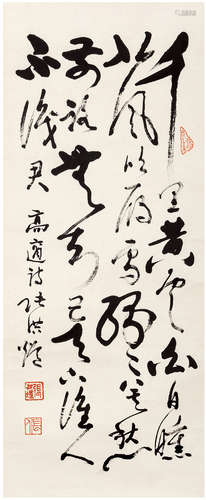 千里黃雲白日曛
北風吹雁雪紛〻莫愁
前路無知己天下誰人
不識君 高適詩 張洪